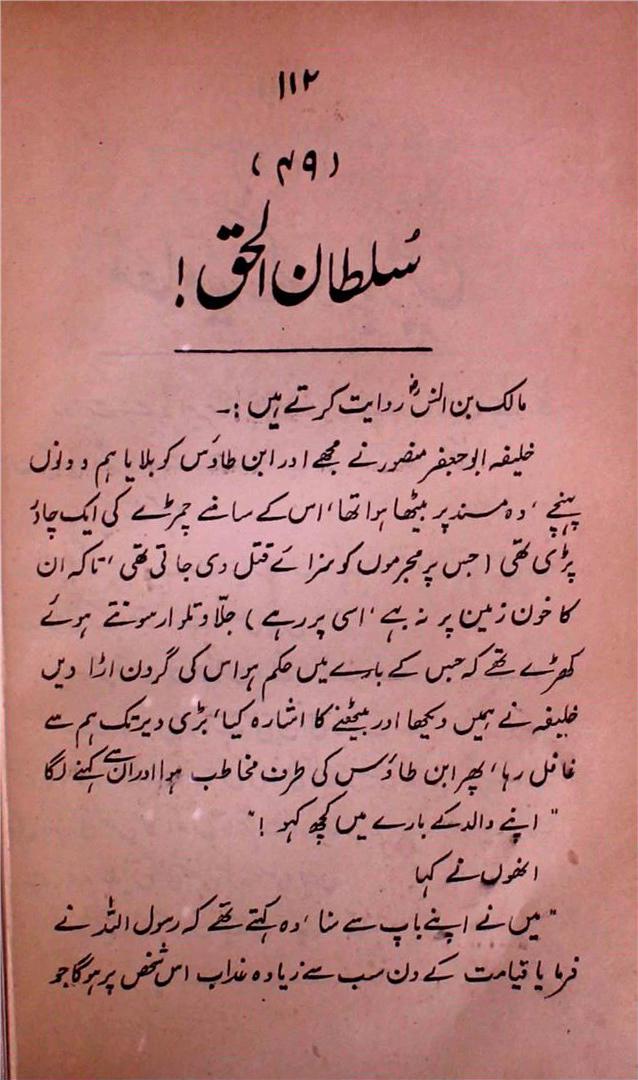 ۱۱۲
(۴۹)
سُلطان الحق!
مالک بن النسؓ روایت کرتے ہیں :۔
خلیفہ ابو جعفر منصور نے مجھے اور ابن طاؤس کو بلایا ہم دونوں
پہنچے ' وہ مسند پر بیٹھا ہوا تھا' اس کے سامنے چمڑے کی ایک چادر
پڑی تھی (جس پر مجرموں کو سزائے قتل دی جاتی تھی ' تاکہ ان
کا خون زمین پر نہ بہے ' اسی پر رہے) جلّاد تلوار سونتے ہوئے
کھڑے تھے کہ جس کے بارے میں حکم ہو اس کی گردن اڑا دیں
خلیفہ نے ہمیں دیکھا اور بیٹھنے کا اشارہ کیا' بڑی دیر تک ہم سے
غافل رہا' پھر ابن طاؤس کی طرف مخاطب ہوا اور ان سے کہنے لگا
" اپنے والد کے بارے میں کچھ کہو !"
انھوں نے کہا
" میں نے اپنے باپ سے سنا ' وہ کہتے تھے کہ رسول اللہ نے
فرمایا قیامت کے دن سب سے زیادہ عذاب اس شخص پر ہوگا جو